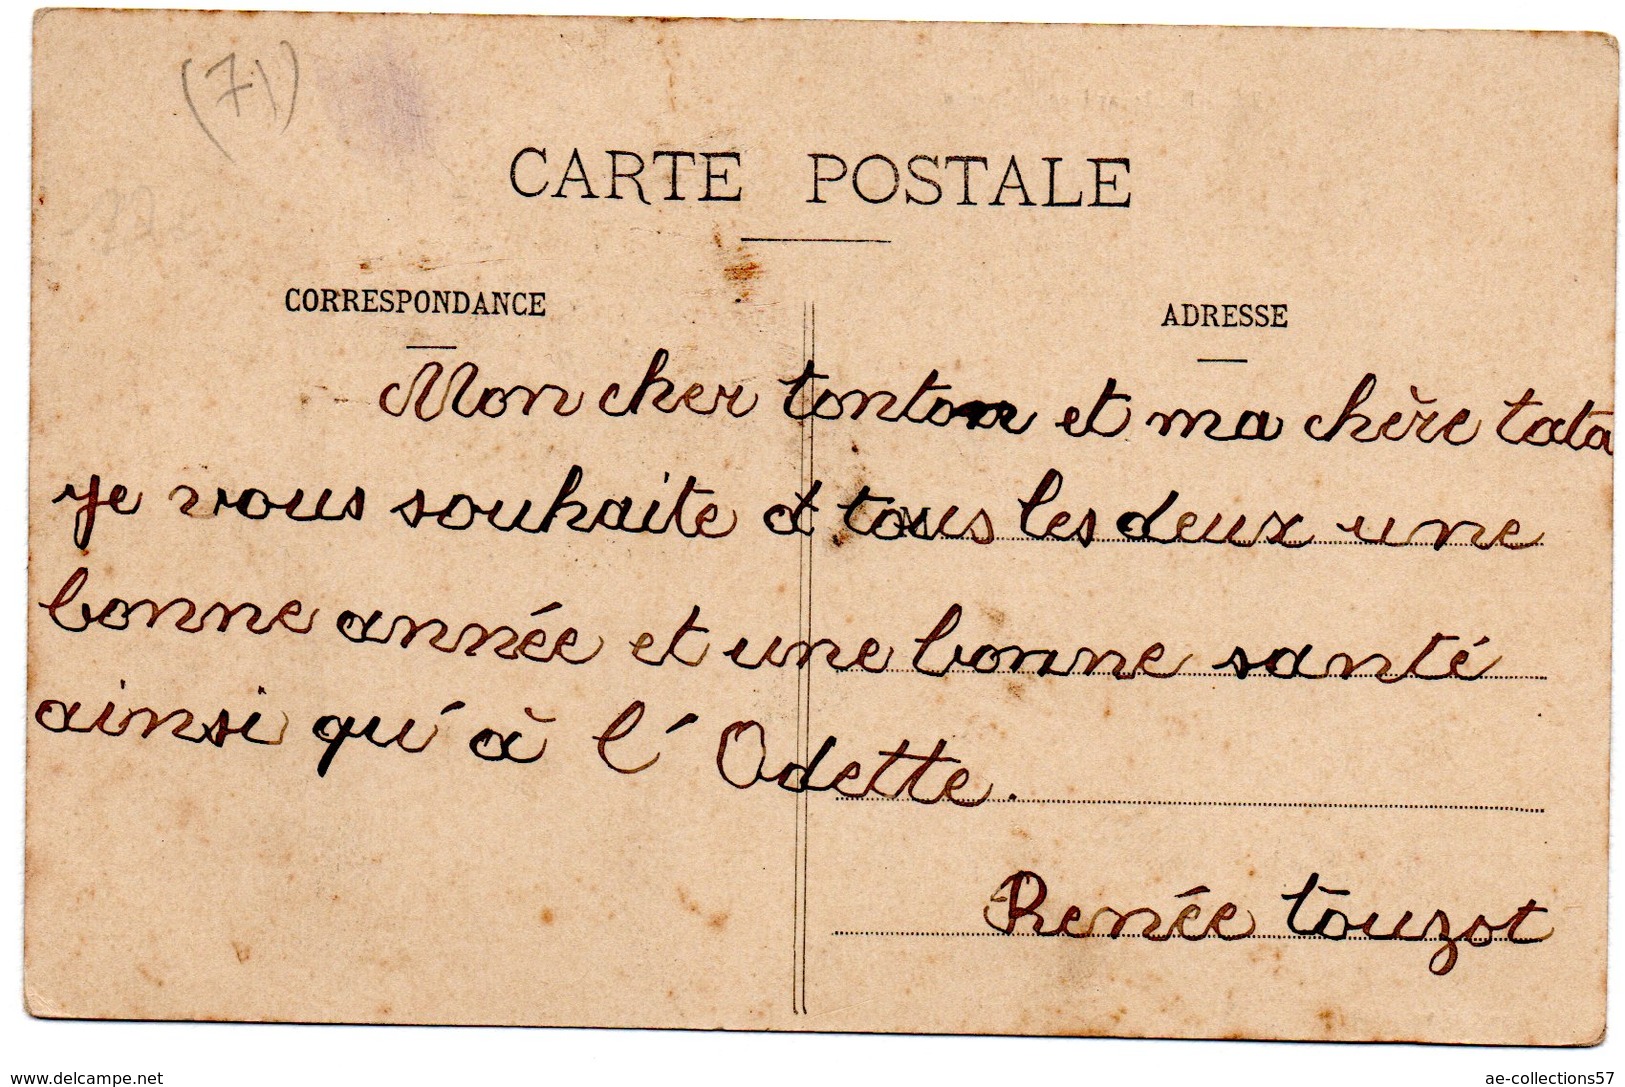 (71)
CARTE POSTALE
CORRESPONDANCE
ADRESSE
Mon cher tonton et ma chère tata
je vous souhaite à tous les deux une
bonne année et une bonne santé
ainsi qu'à l'Odette.
Renée Touzot
www.delcampe.net
ae-collections57